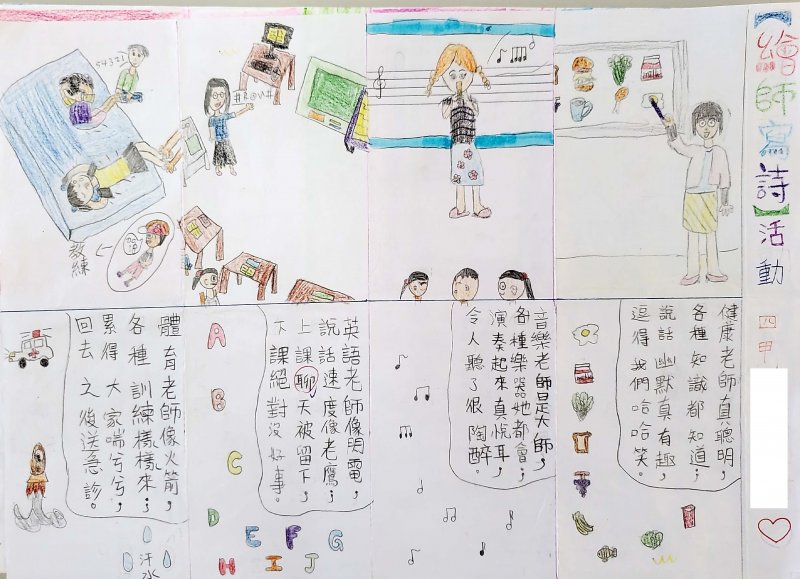 【繪師寫詩】活動
四甲
健康老師真聰明，
各種知識都知道；
說話幽默真有趣，
逗得我們哈哈笑。
音樂老師是大師，
各種樂器她都會；
演奏起來真悅耳，
令人聽了很陶醉。
英語老師像閃電，
說話速度像老鷹；
上課聊天被留下，
下課絕對沒好事。
A
B
C
D E F G
H I J
54321
教練
體育老師像火箭，
各種訓練樣樣來；
累得大家喘兮兮，
回去之後送急診。
汗水